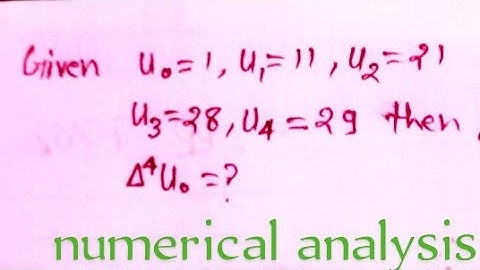 Given u₀=1, u₁=11, u₂=21
u₃=28, u₄=29 then,
Δ⁴u₀=?
numerical analysis